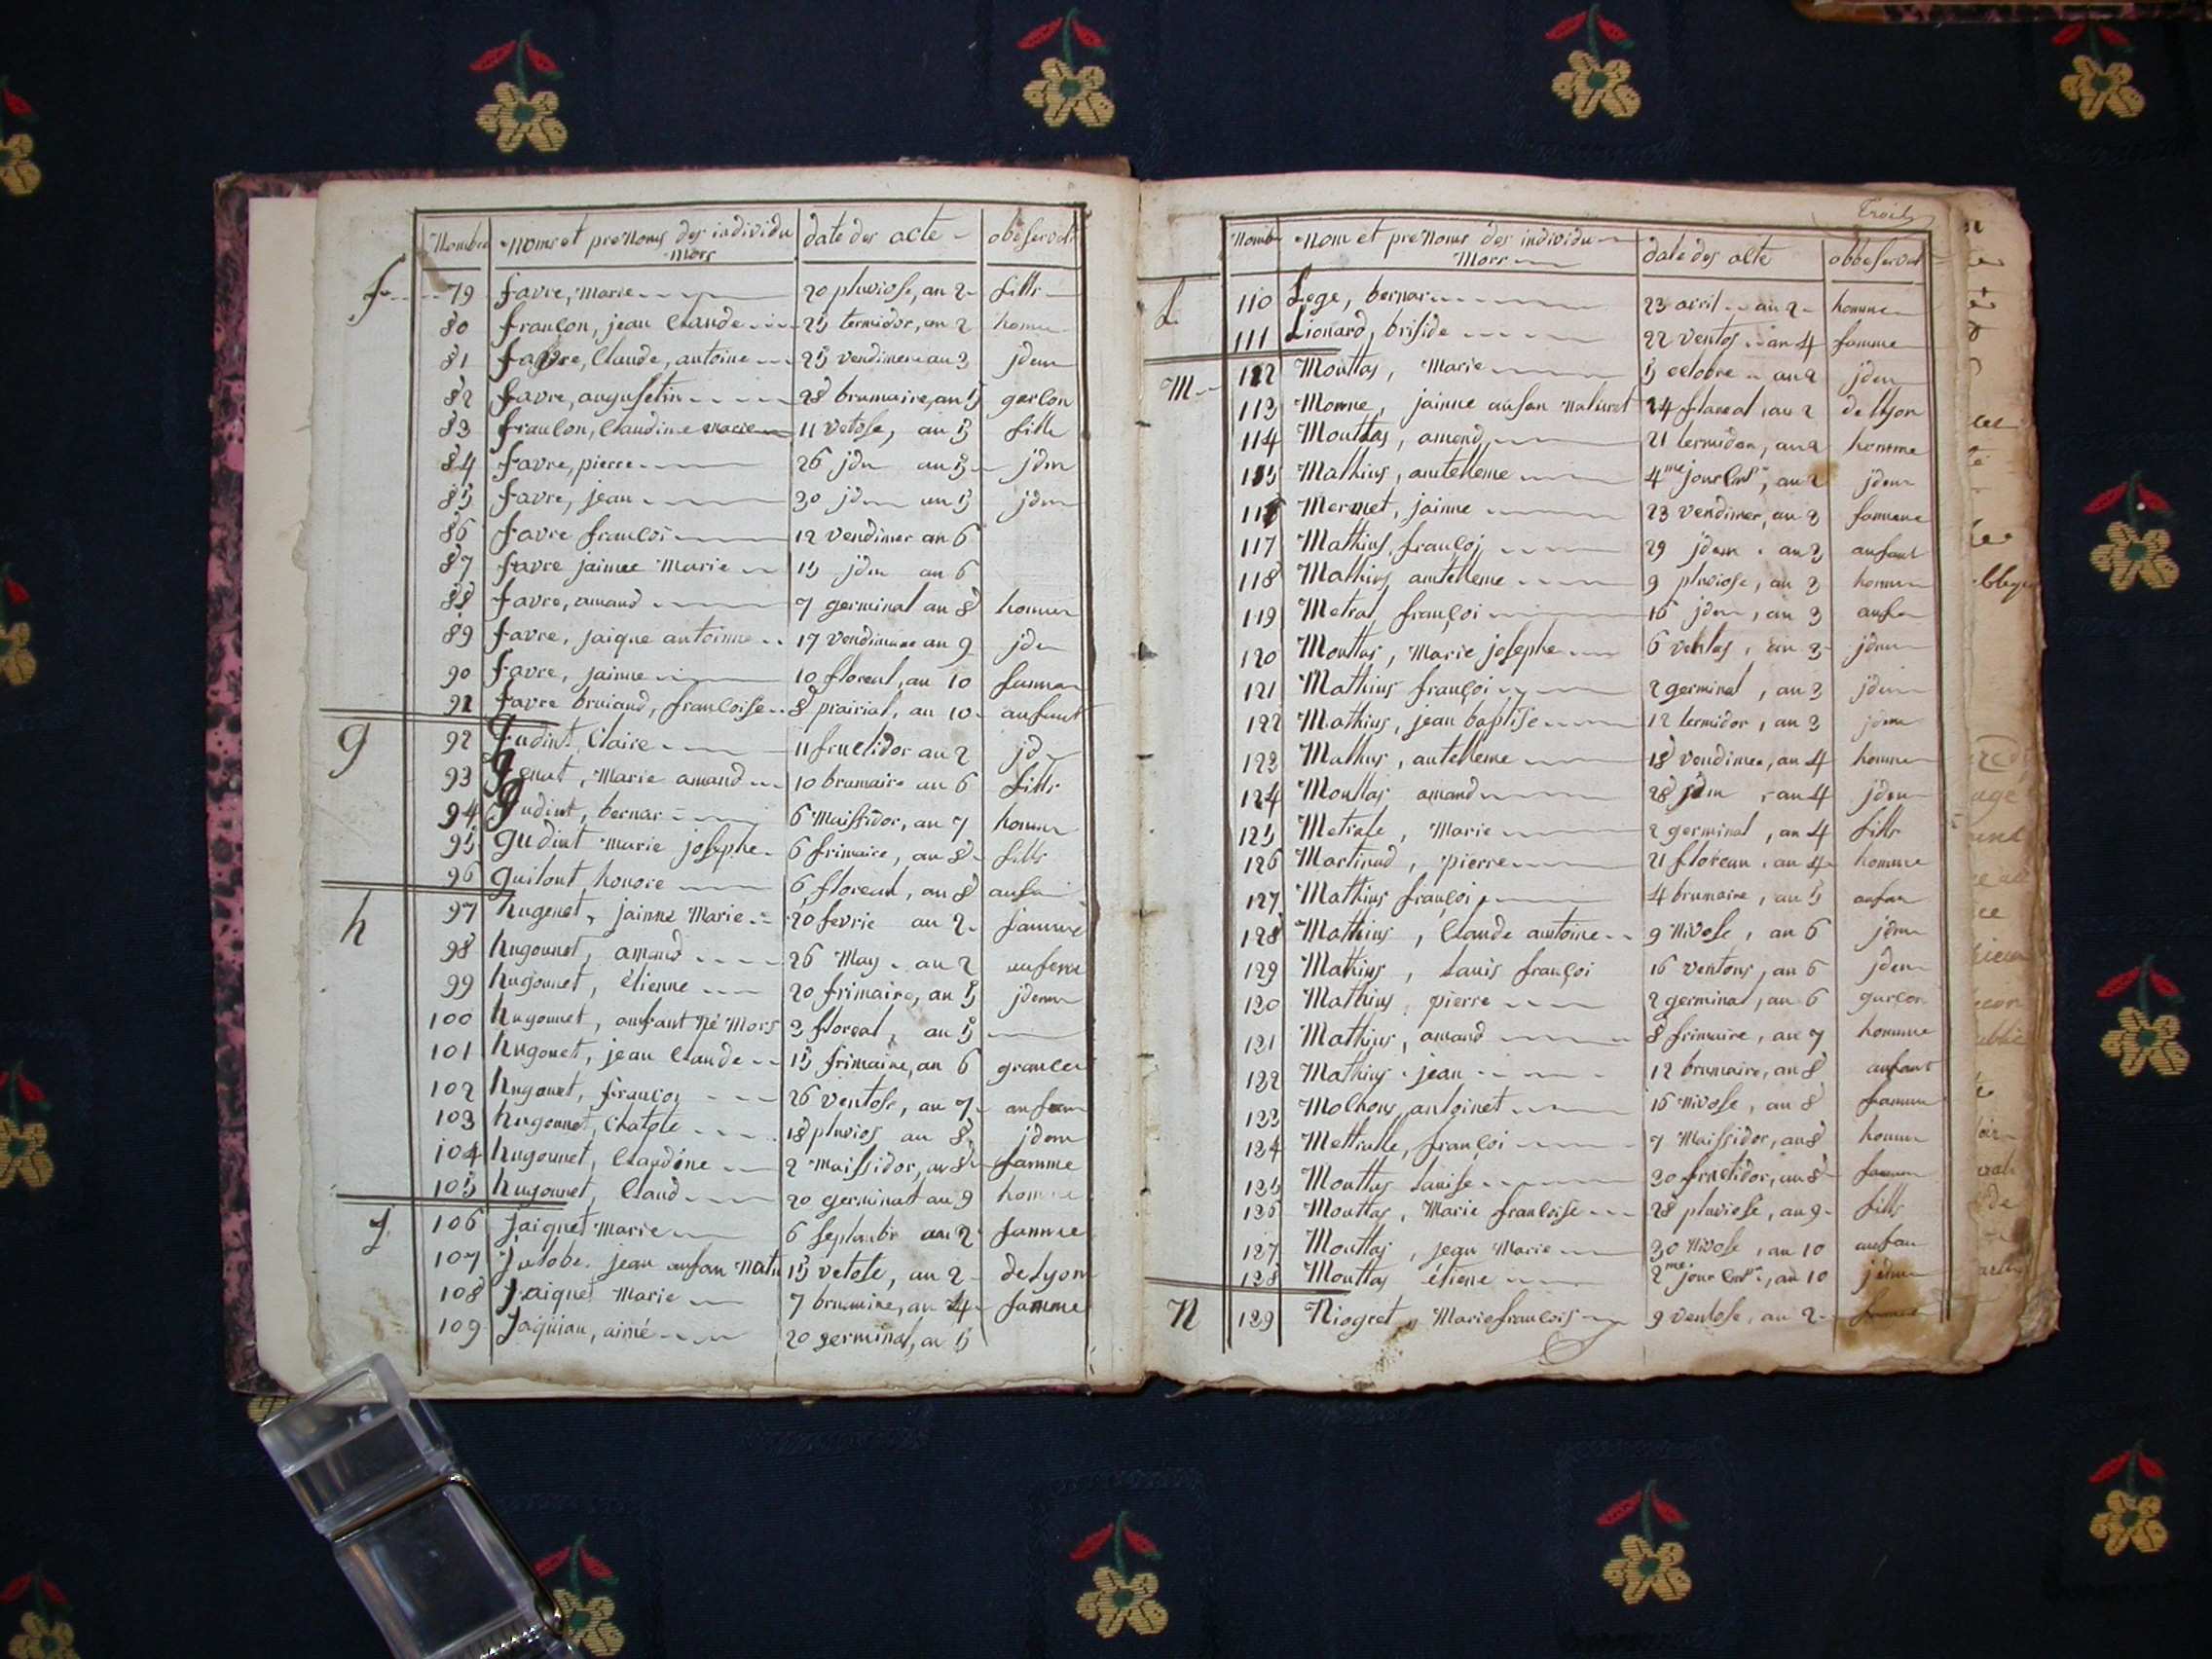 Nombre noms et prenoms des individu mors date des acte obbservat
f 79 favre, marie 20 pluviose, an 2 fille
80 françon, jean claude 25 termidor, an 2 homme
81 favre, claude, antoine 25 vendimere an 3 jdem
82 favre, augusetin 28 brumaire, an 5 garcon
83 françon, claudine marie 11 vetose, an 5 fille
84 favre, pierre 26 jdm an 5 jdm
85 favre, jean 30 jdm an 5 jdm
86 favre françoi 12 vendimer an 6
87 favre jaimee marie 15 jdm an 6
88 favre, amand 7 germinal an 8 homme
89 favre, jaique antoinne 17 vendimiare an 9 jdm
90 favre, jainne 10 floreal, an 10 famme
91 favre bruiand, francoise 8 prairial, an 10 anfant
g 92 gudint, claire 11 fructidor an 2 jd
93 genat, marie amand 10 brumaire an 6 fille
94 gudint, bernar 6 maissidor, an 7 homme
95 gudint marie josephe 6 frimaire, an 8 fille
96 guitont, honore 6 floreal, an 8 anfan
h 97 hugenet, jainne marie 20 fevrie an 2 famme
98 hugonnet, amand 26 may an 2 anfant
99 hugonnet, étienne 20 frimaire, an 5 jdem
100 hugonnet, anfant né mors 3 floreal, an 5
101 hugonet, jean claude 15 frimaire, an 6
102 hugonet, françoy 26 ventose, an 7 anfan
103 hugonnet, 18 pluvios an 8 jdem
104 hugonnet, claudine 2 maissidor, an 8 famme
105 hugonnet, claud 20 germinal an 9 homme
J 106 jaiquet marie 6 septanbr an 2 famme
107 jean anfan natu 15 vetose, an 2 de lyon
108 jaiquet marie 7 brumaire, an 4 famme
109 jaquian, aimé 20 germinal, an 5
Trois
Nomb nom et prenoms des individu mors date des acte obbeservat
L 110 Lege, bernar 23 avril an 2 homme
111 Lionard, briside 22 ventos an 4 famme
M 112 Mouttas, Marie 5 octobre an 2 jdem
113 Momne, jainne anfan naturel 24 flareal an 2 de lyon
114 Mouttas, amand 21 termidor, an 2 homme
115 Mathius, antelleme 4me jour, an 2 jdem
116 Mermet, jainne 23 vendimer, an 3 famme
117 Mathius, françoi 29 jdem an 3 anfant
118 Mathius antelleme 9 pluviose, an 3 homme
119 Metral françoi 16 jdem, an 3 anfan
120 Mouttas, Marie josephe 6 ventos, an 3 jdem
121 Mathius françoi 2 germinal, an 3 jdem
122 Mathius, jean baptise 12 termidor, an 3 jdem
123 Mathius, antelleme 18 vendimea, an 4 homme
124 Mouttas amand 28 jdm, an 4 jdem
125 Metrale, Marie 2 germinal, an 4 fille
126 Martinud, pierre 21 florean, an 4 homme
127 Mathius françoi 4 brumaire, an 5 anfan
128 Mathius, claude antoine 9 nivose, an 6 jdem
129 Mathius, louis françoi 16 ventous, an 6 jdem
130 Mathius, pierre 2 germinal, an 6 garcon
131 Mathius, amand 8 frimaire, an 7 homme
132 Mathius, jean 12 brumaire, an 8 anfant
133 Molhous, antoinet 16 nivose, an 8 famme
134 Mettralle, françoi 7 maissidor, an 8 homme
135 Mouttas louise 30 fructidor, an 8 famme
136 Mouttas, Marie francoise 28 pluviose, an 9 fille
137 Mouttas, jean Marie 30 nivose, an 10 anfan
138 Mouttas étiene 2me jour, an 10 jdem
N 139 Niogret, Marie francois 9 ventose, an 2